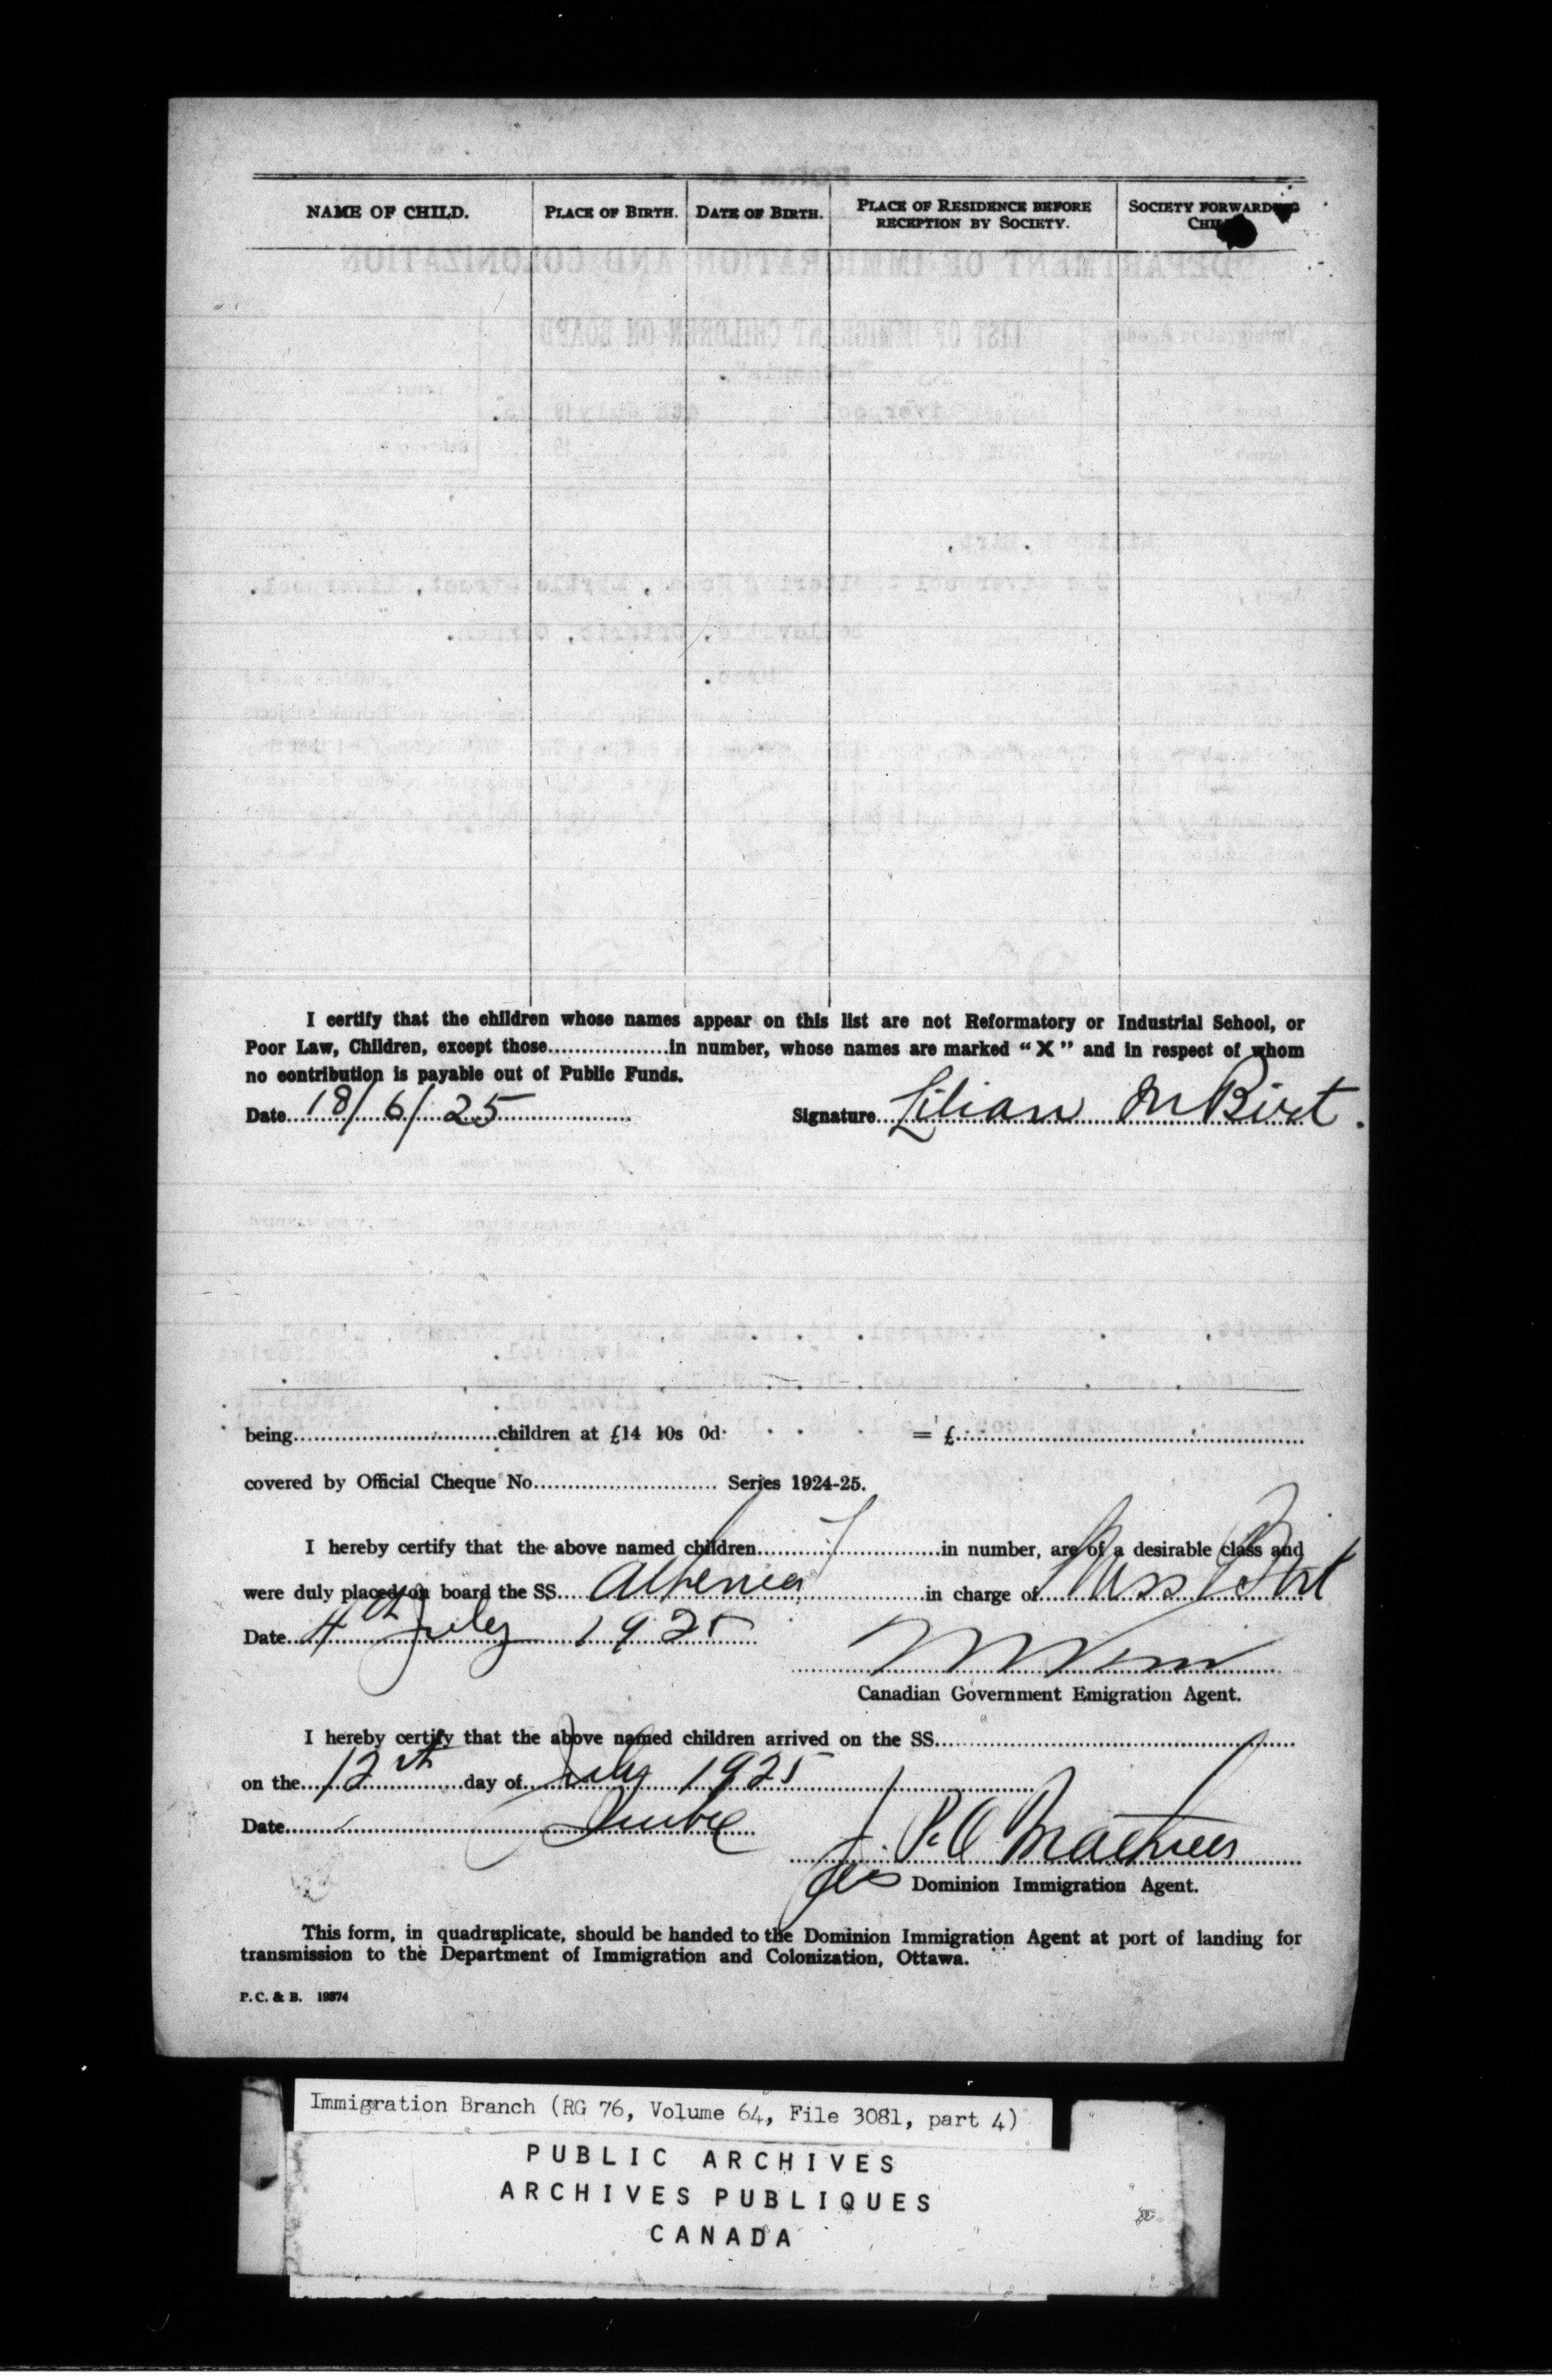 NAME OF CHILD. PLACE OF BIRTH. DATE OF BIRTH. PLACE OF RESIDENCE BEFORE RECEPTION BY SOCIETY. SOCIETY FORWARDING
I certify that the children whose names appear on this list are not Reformatory or Industrial School, or
Poor Law, Children, except those..................in number, whose names are marked “X” and in respect of whom
no contribution is payable out of Public Funds.
Date 18/6/25 Signature Lilian M Birt.
being..............................children at £14 10s 0d. = £
covered by Official Cheque No........................... Series 1924-25.
I hereby certify that the above named children in number, are of a desirable class and
were duly placed on board the SS. Athenia in charge of Miss Birt
Date 4th July 1925
Canadian Government Emigration Agent.
I hereby certify that the above named children arrived on the SS.
on the 12th day of July 1925
Date Quebec
Dominion Immigration Agent.
This form, in quadruplicate, should be handed to the Dominion Immigration Agent at port of landing for
transmission to the Department of Immigration and Colonization, Ottawa.
P. C. & B. 19374
Immigration Branch (RG 76, Volume 64, File 3081, part 4)
PUBLIC ARCHIVES
ARCHIVES PUBLIQUES
CANADA